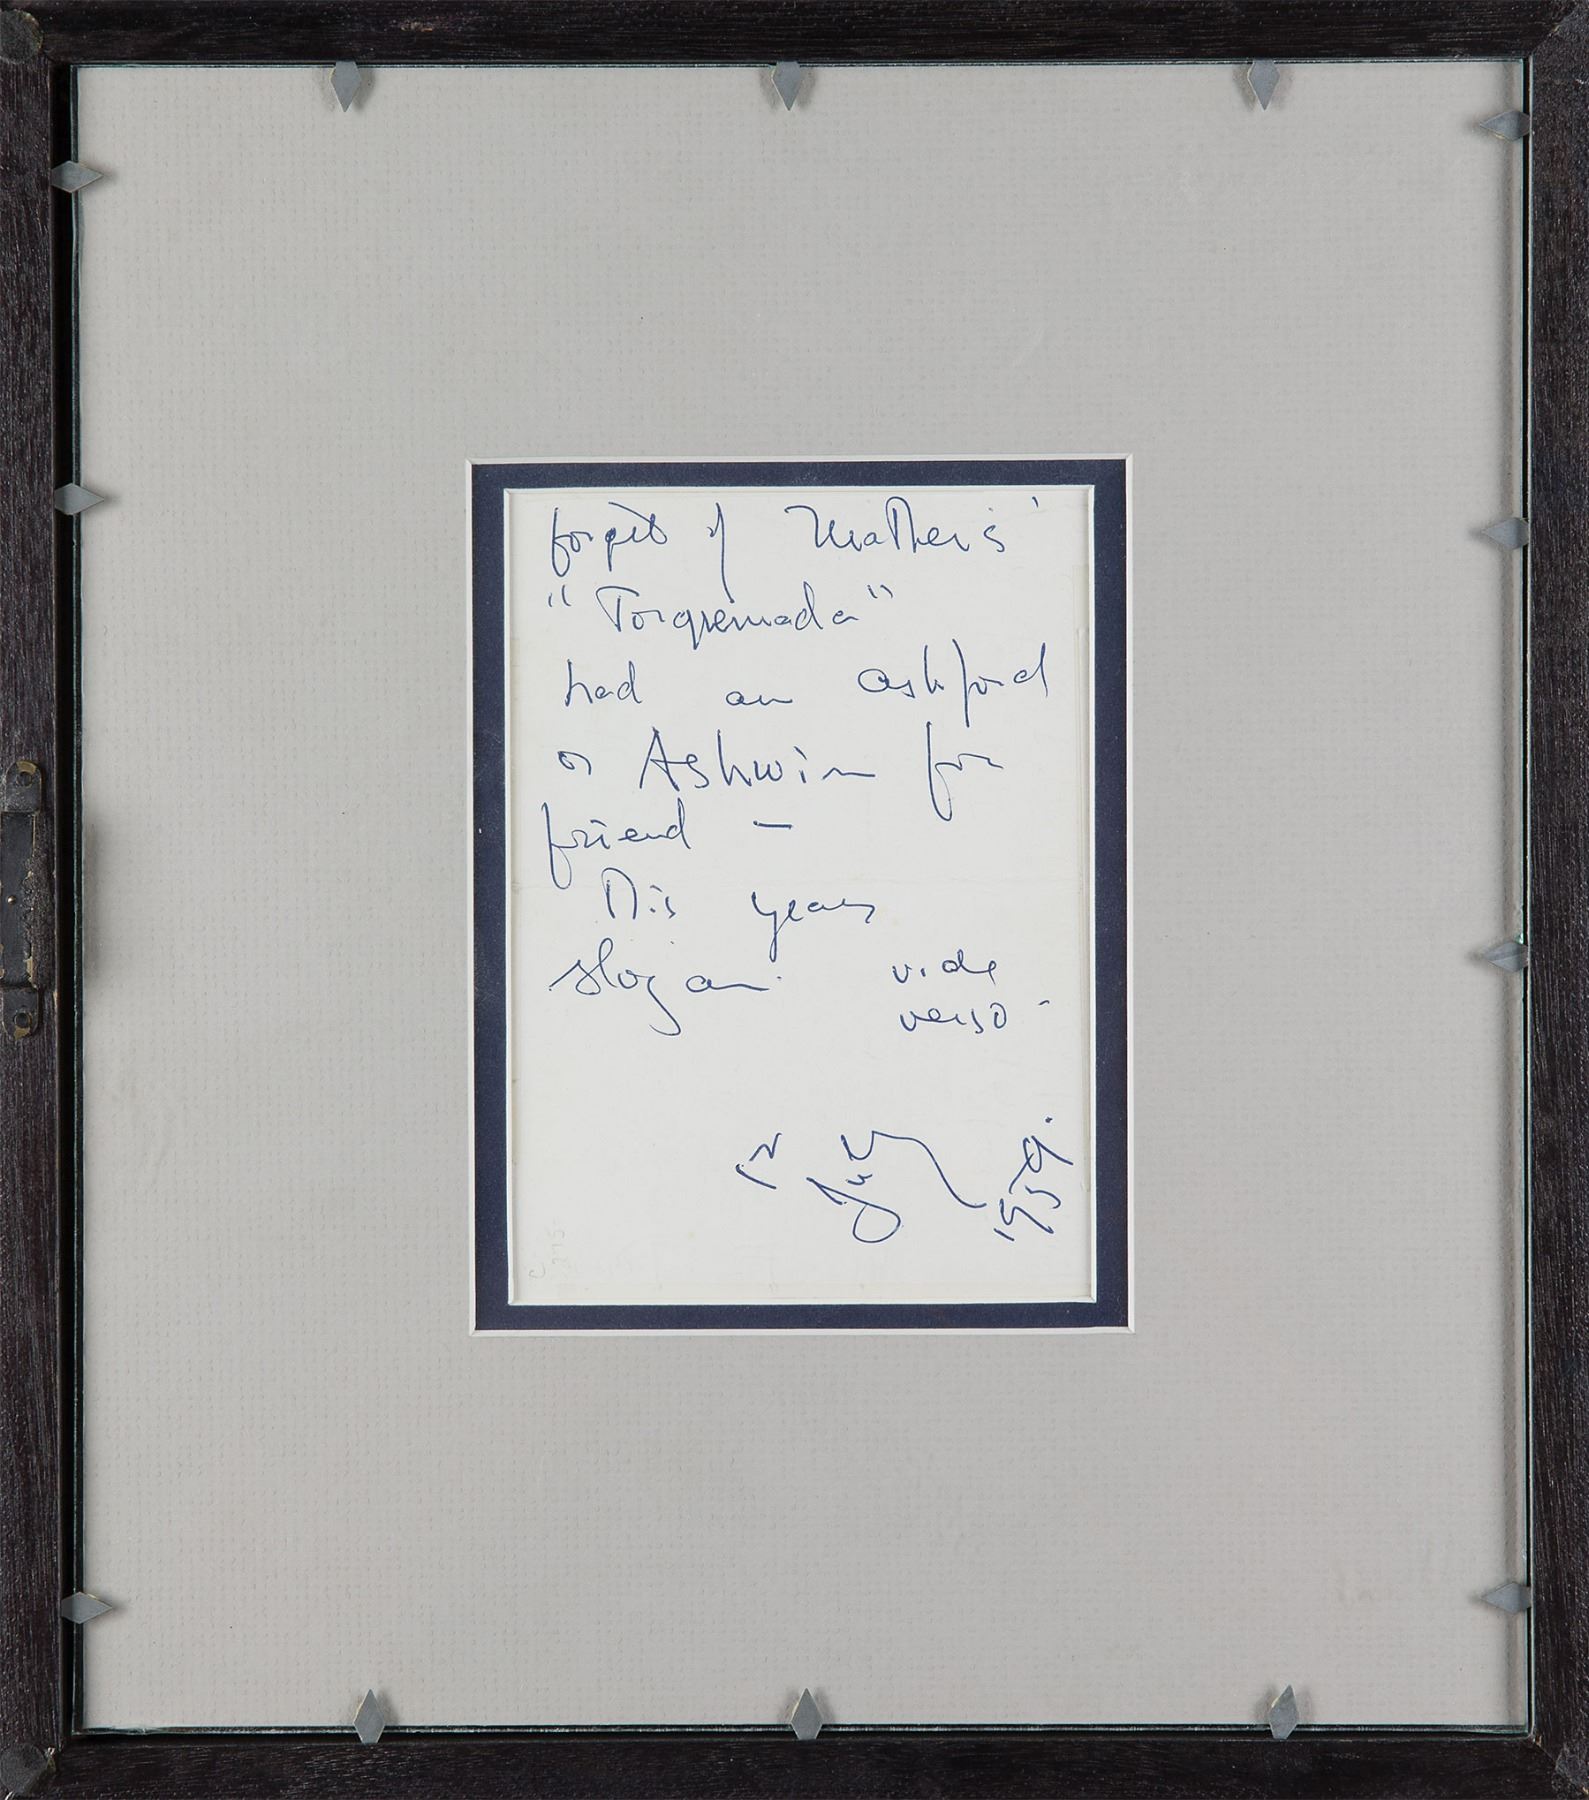 forget if Mathers'
"Torquemada"
had an ashford
or Ashwin for
friend -
This years
slogan. vide
verso -
12 July 1959.